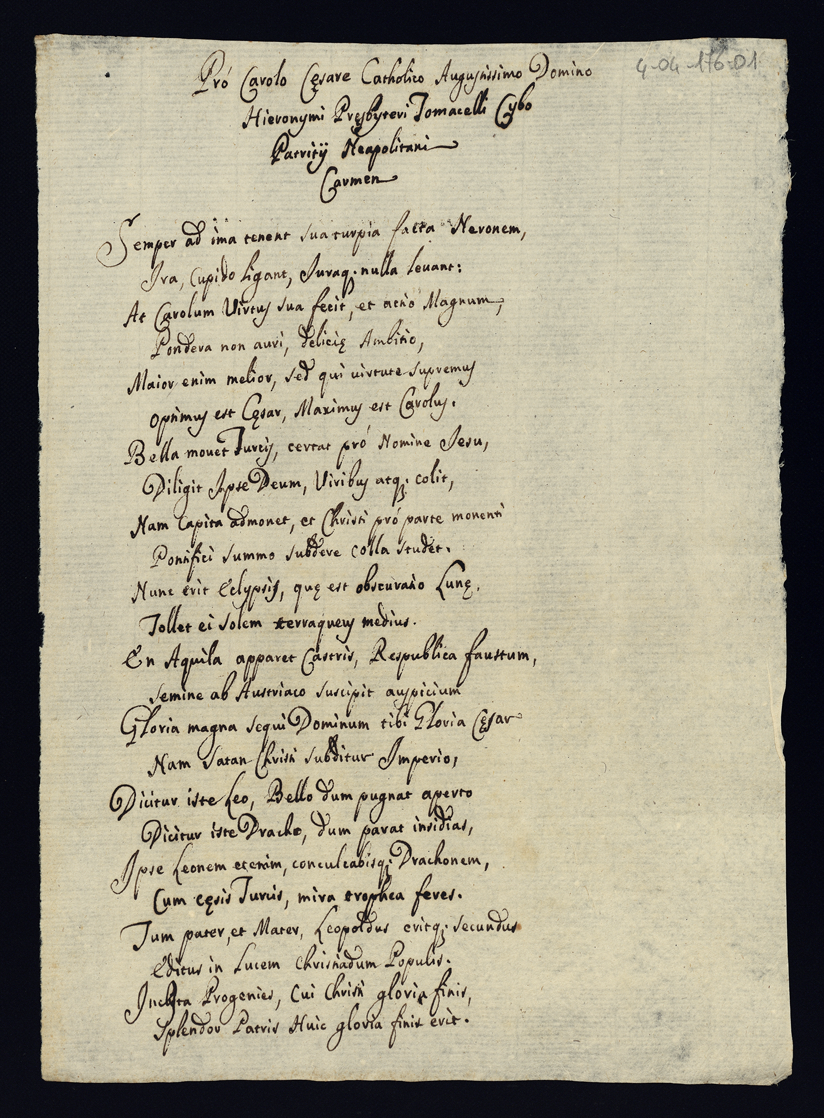 4-04-176-01
Pró Carolo Cęsare Catholico Augustissimo Domino
Hieronymi Pręsbyteri Tomacelli Cybo
Patritij Neapolitani
Carmen
Semper ad ima tenent sua turpia facta Neronem,
Ira, Cupido ligant, Juraq; nulla levant:
At Carolum Virtus sua fecit, et actio Magnum,
Pondera non auri, delicię Ambitio,
Maior enim melior, sed qui virtute supremus
Optimus est Cęsar, Maximus est Carolus.
Bella movet Turcis, certat pró Nomine Jesu,
Diligit Ipse Deum, Viribus atq; colit,
Nam Capita admonet, et Christi pró parte monenti
Pontifici summo subdere colla studet.
Nunc erit Eclypsis, quę est obscuratio Lunę,
Tollet ei Solem terraqueus medius.
En Aquila apparet Castris, Respublica faustum,
Semine ab Austriaco suscipit auspicium
Gloria magna sequi Dominum tibi Gloria Cęsar
Nam Satan Christi subditur Imperio,
Dicitur iste Leo, Bello dum pugnat aperto
Dicitur iste Dracho, dum parat insidias,
Ipse Leonem etenim, conculcabisq; Drachonem,
Cum cęsis Turcis, mira trophea feres.
Tum pater, et Mater, Leopoldus eritq; secundus
Editus in Lucem Christiadum Populis.
Inclita Progenies, Cui Christi gloria finis,
Splendor Patris Huic gloria finis erit.